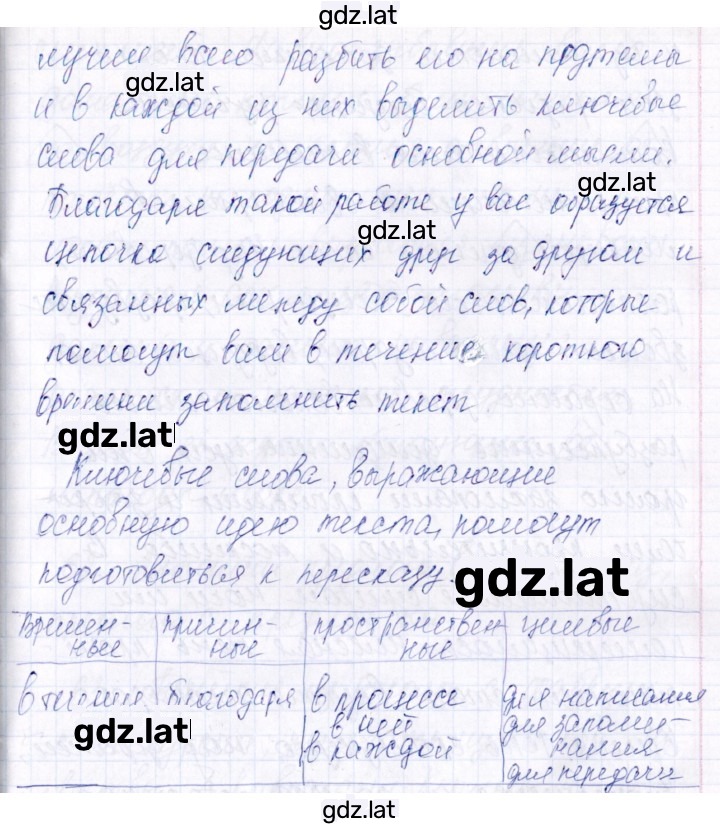 gdz.lat
лучше всего разбить его на подтемы
gdz.lat
и в каждой из них выделить ключевые
слова для передачи основной мысли.
gdz.lat
Благодаря такой работе у вас образуется
gdz.lat
цепочка следующих друг за другом и
связанных между собой слов, которые
помогут вам в течение короткого
времени запомнить текст.
gdz.lat
Ключевые слова, выражающие
основную идею текста, помогут
подготовиться к пересказу.
gdz.lat
Времен- причин- пространствен целевые
ные ные ные
в течение благодаря в процессе для написания
gdz.lat в ней для запоми-
в каждой нания
для передачи
gdz.lat